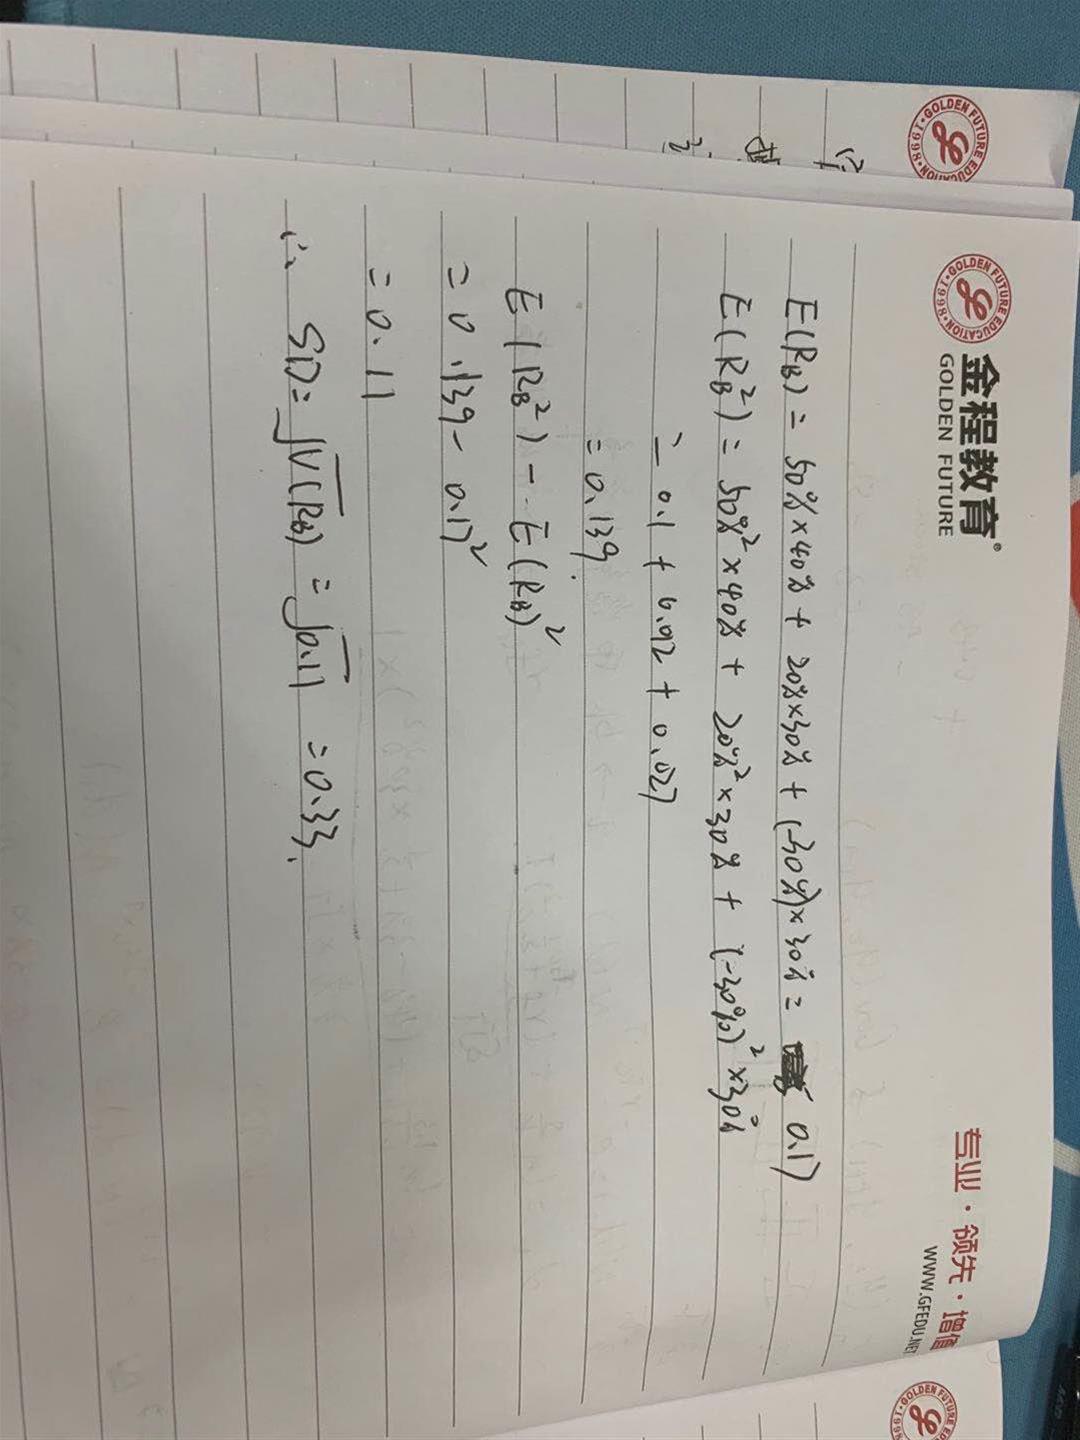 GOLDEN FUTURE EDUCATION · 1998
金程教育®
GOLDEN FUTURE
专业 · 领先 · 增值
WWW.GFEDU.NET
E(R_B) = 50%×40% + 20%×30% + (-30%)×30% = 0.17
E(R_B²) = 50%²×40% + 20%²×30% + (-30%)²×30%
= 0.1 + 0.012 + 0.027
= 0.139.
E(R_B²) - E(R_B)²
= 0.139 - 0.17²
= 0.11
∴ SD = √V(R_B) = √0.11 = 0.33.